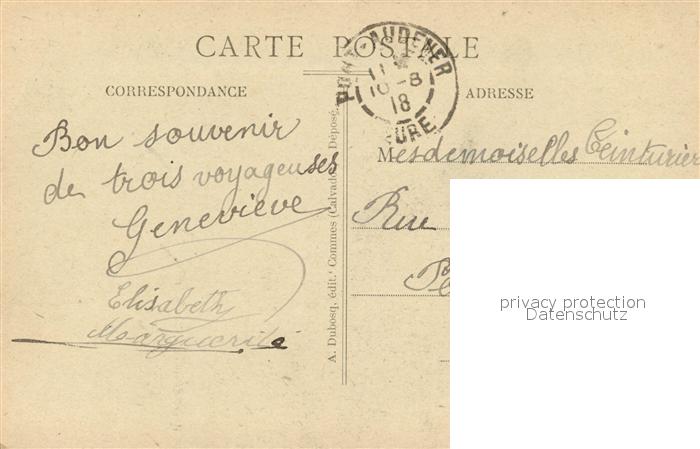 CARTE POSTALE
CORRESPONDANCE
ADRESSE
PONT-AUDEMER
11
10-8
18
EURE
Bon souvenir
de trois voyageuses
Geneviève
Elisabeth
Marguerite
A. Dubosq, édit.' Commes (Calvados) Déposé.
Mesdemoiselles Teinturier
Rue
privacy protection
Datenschutz